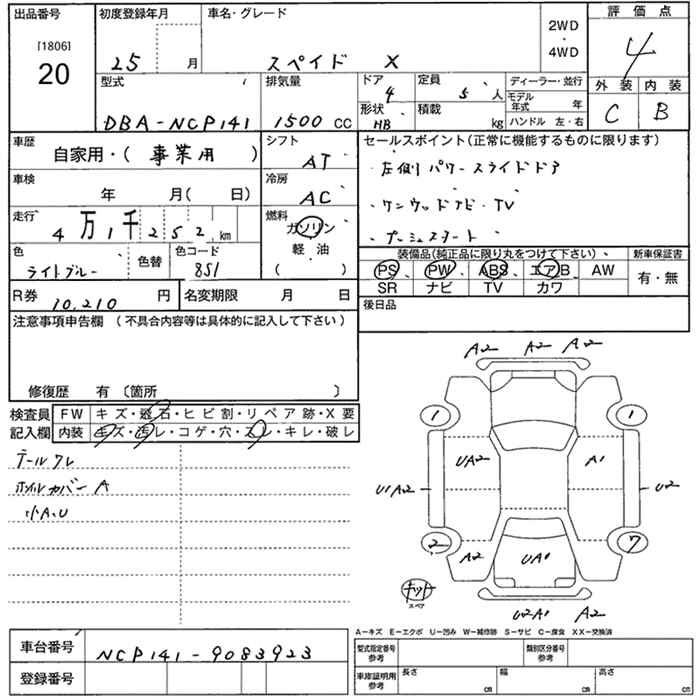 出品番号 初度登録年月 車名・グレード 2WD・4WD 評価点
[1806] 20 25 月 スペイド X 4
型式 排気量 ドア 4 定員 5 人 ディーラー・並行 外装 内装
DBA-NCP141 1500 CC 形状 HB 積載 kg モデル年式 年 C B
ハンドル 左・右
車歴 シフト セールスポイント(正常に機能するものに限ります)
自家用・(事業用) AT 左側 パワースライドドア
車検 冷房
年 月(日) AC ケンウッドナビ・TV
走行 燃料
4万1千252km ガソリン プッシュスタート
色 色替 色コード 軽・油 装備品(純正品に限り丸をつけて下さい)、 新車保証書
ライトブルー 851 ( ) PS PW ABS エアB AW 有・無
SR ナビ TV カワ
R券 10,210 円 名変期限 月 日 後日品
注意事項申告欄 (不具合内容等は具体的に記入して下さい)
修復歴 有 〔箇所 〕
検査員 FW キズ・飛石・ヒビ割・リペア跡・X要
記入欄 内装 キズ・汚レ・コゲ・穴・スレ・キレ・破レ
テールワレ
ホイルカバー A
小A、U
A2 A2 A2
1 1
UA2 A1
U1A2 U2
2 7
A2 UA1
スペア
U2A1 A2
A-キズ E-エクボ U-凹み W-補修跡 S-サビ C-腐食 XX-交換済
車台番号 NCP141-9083923 型式指定番号参考 類別区分番号参考
登録番号 車庫証明用参考 長さ cm 幅 cm 高さ cm